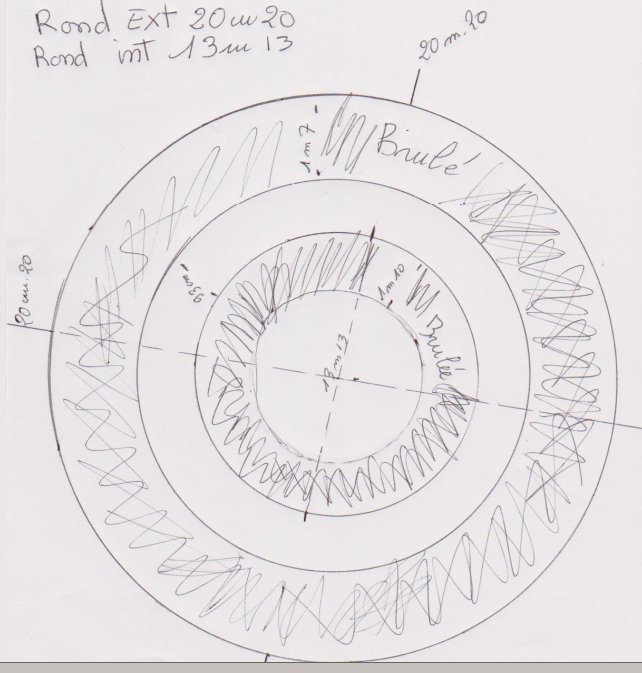 Rond Ext 20m20
Rond int 13m13
20m.20
1m7
Brulé
93m
1m10
20m.20
Brulée
13m13